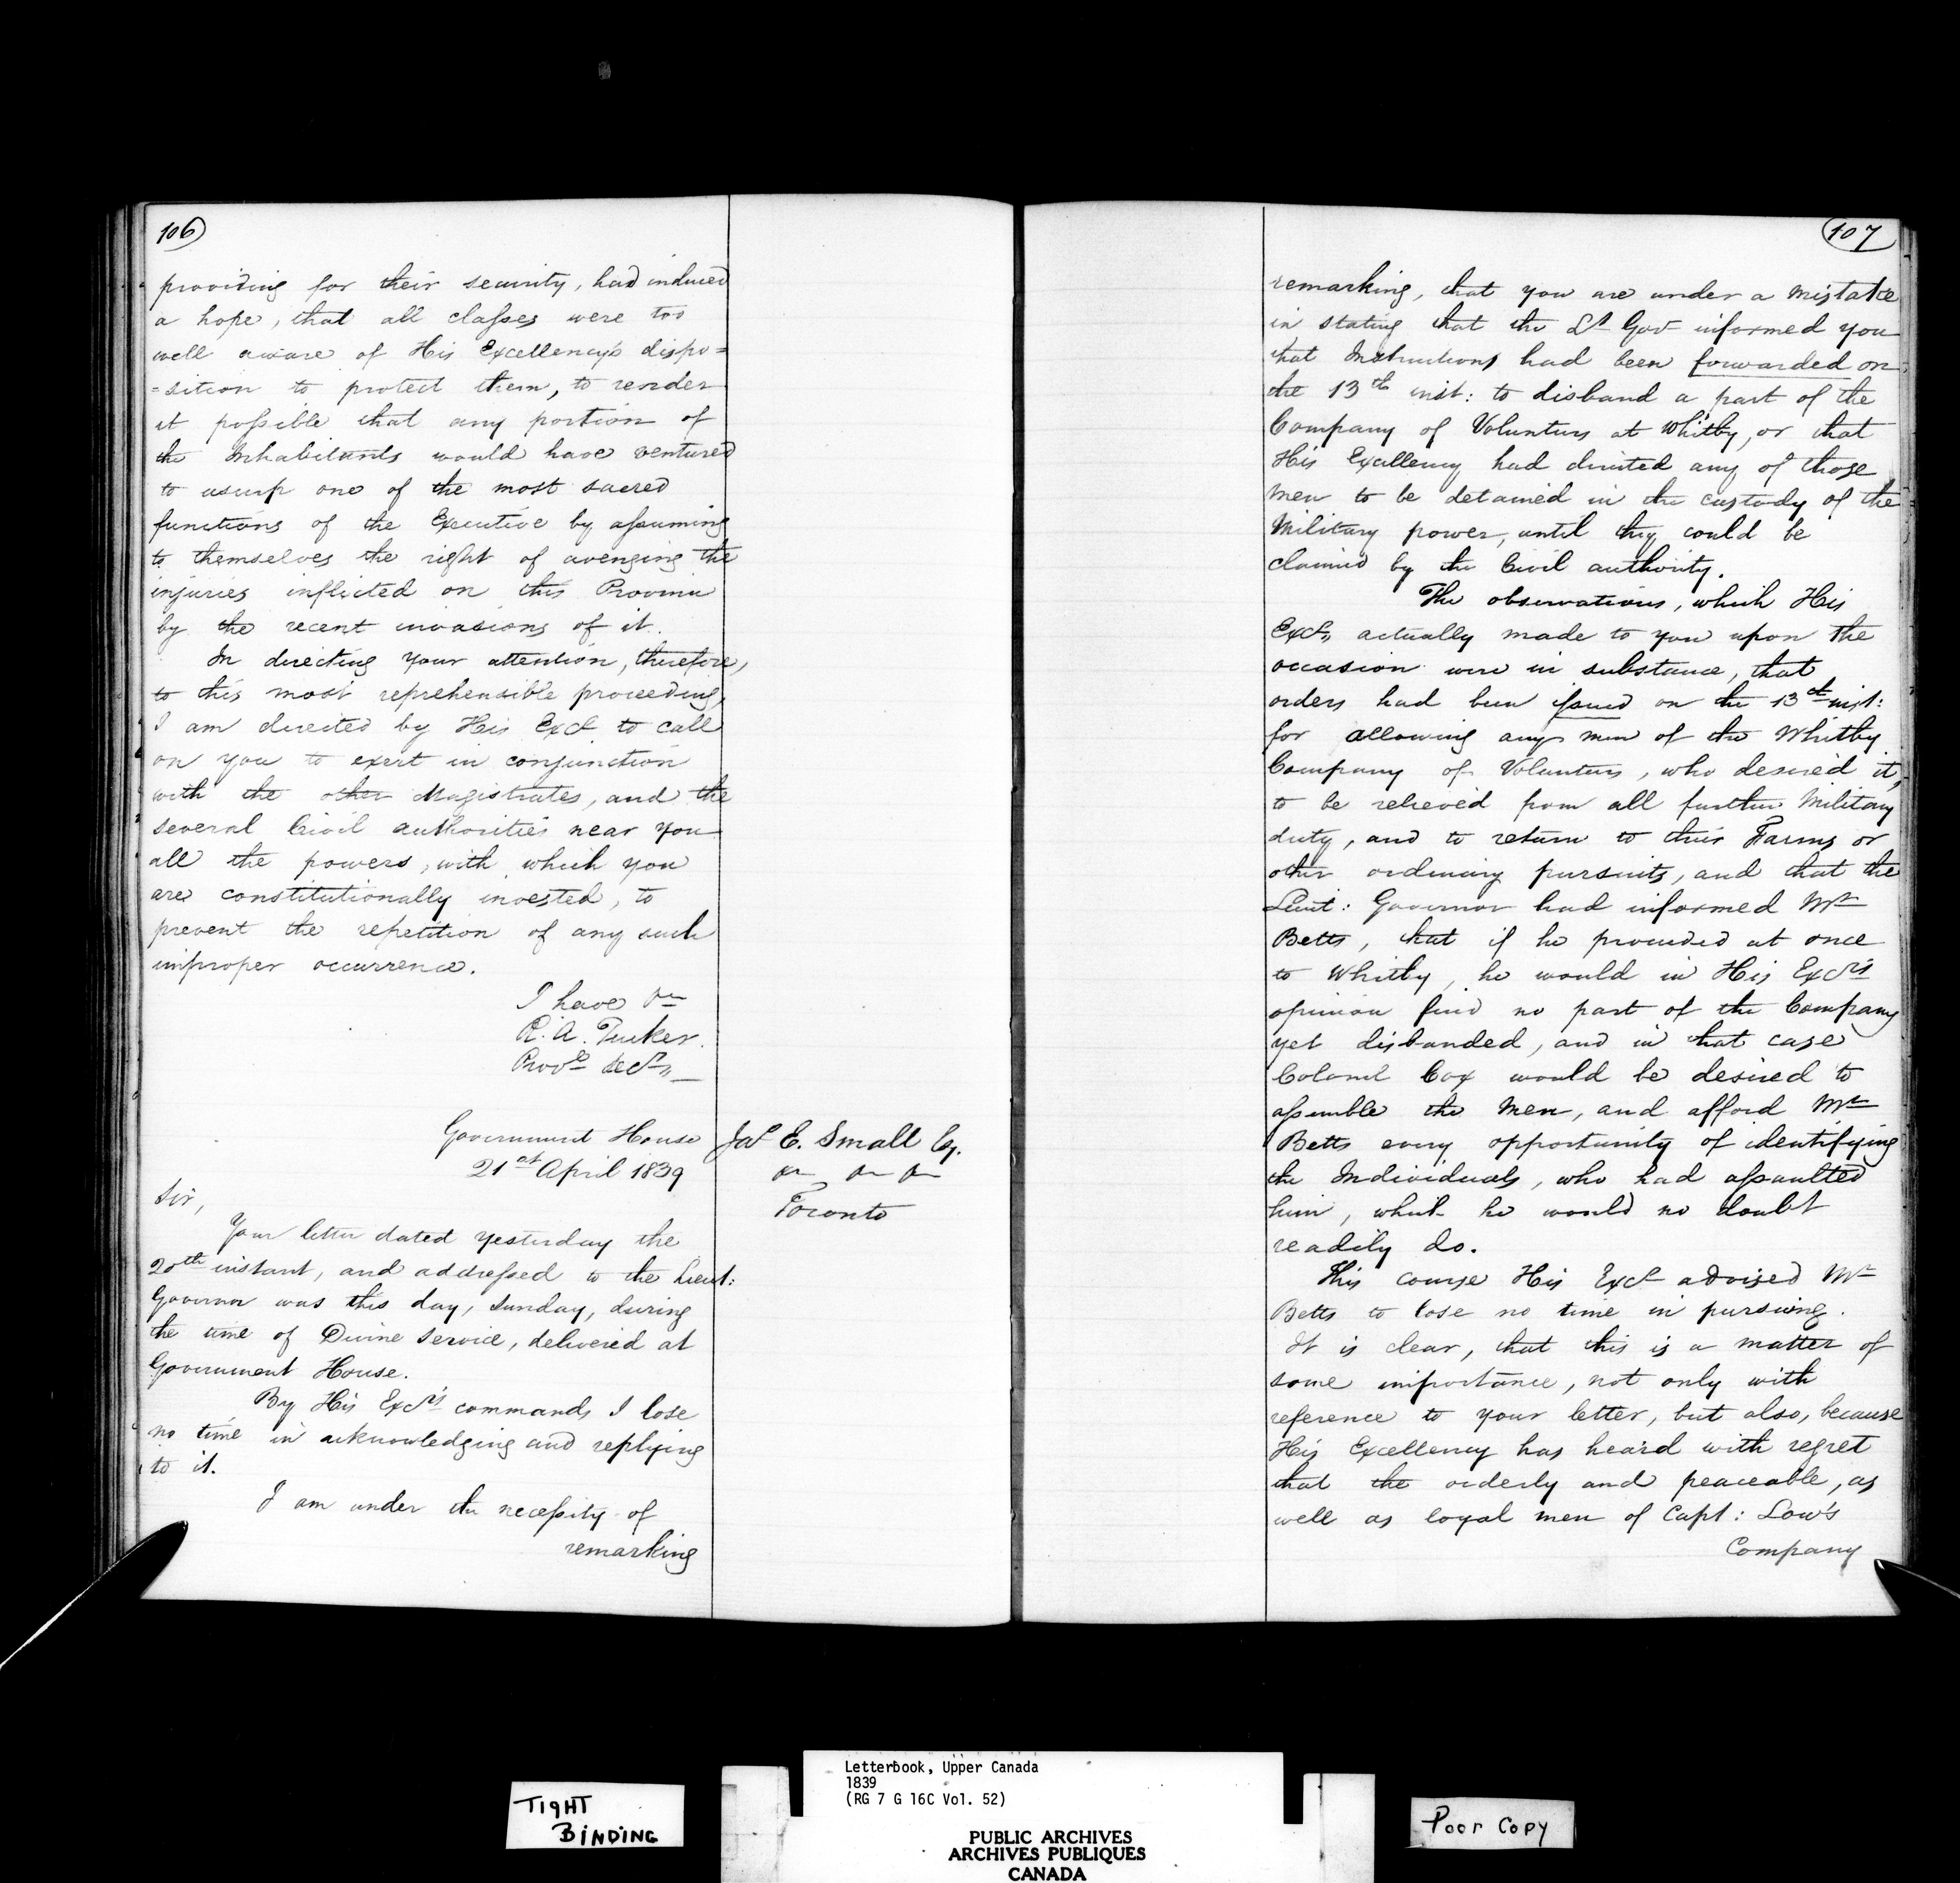 106
providing for their security, had induced
a hope, that all classes were too
well aware of His Excellency's dispo=
=sition to protect them, to render
it possible that any portion of
the Inhabitants would have ventured
to usurp one of the most sacred
functions of the Executive by assuming
to themselves the right of avenging the
injuries inflicted on this Province
by the recent invasions of it.
In directing your attention, therefore,
to this most reprehensible proceeding,
I am directed by His Excy to call
on you to exert in conjunction
with the other Magistrates, and the
several Civil authorities near you
all the powers, with which you
are constitutionally invested, to
prevent the repetition of any such
improper occurrence.
I have &c
R. A. Tucker.
Provl Secy
Government House
21st April 1839
Jas E. Small Esq.
&c &c &c
Toronto
Sir,
Your letter dated yesterday the
20th instant, and addressed to the Lieut:
Governor was this day, Sunday, during
the time of Divine Service, delivered at
Government House.
By His Excy's commands I lose
no time in acknowledging and replying
to it.
I am under the necessity of
remarking
107
remarking, that you are under a mistake
in stating that the Lt Govr informed you
that Instructions had been forwarded on
the 13th inst: to disband a part of the
Company of Volunteers at Whitby, or that
His Excellency had directed any of those
men to be detained in the custody of the
Military power, until they could be
claimed by the Civil authority.
The observations, which His
Excy actually made to you upon the
occasion were in substance, that
orders had been issued on the 13th inst:
for allowing any men of the Whitby
Company of Volunteers, who desired it,
to be relieved from all further Military
duty, and to return to their Farms or
other ordinary pursuits, and that the
Lieut: Governor had informed Mr
Betts, that if he proceeded at once
to Whitby, he would in His Excy's
opinion find no part of the Company
yet disbanded, and in that case
Colonel Cox would be desired to
assemble the men, and afford Mr
Betts every opportunity of identifying
the Individuals, who had assaulted
him, which he would no doubt
readily do.
This course His Excy advised Mr
Betts to lose no time in pursuing.
It is clear, that this is a matter of
some importance, not only with
reference to your letter, but also, because
His Excellency has heard with regret
that the orderly and peaceable, as
well as loyal men of Capt: Low's
Company
TIGHT
BINDING
Letterbook, Upper Canada
1839
(RG 7 G 16C Vol. 52)
PUBLIC ARCHIVES
ARCHIVES PUBLIQUES
CANADA
Poor Copy